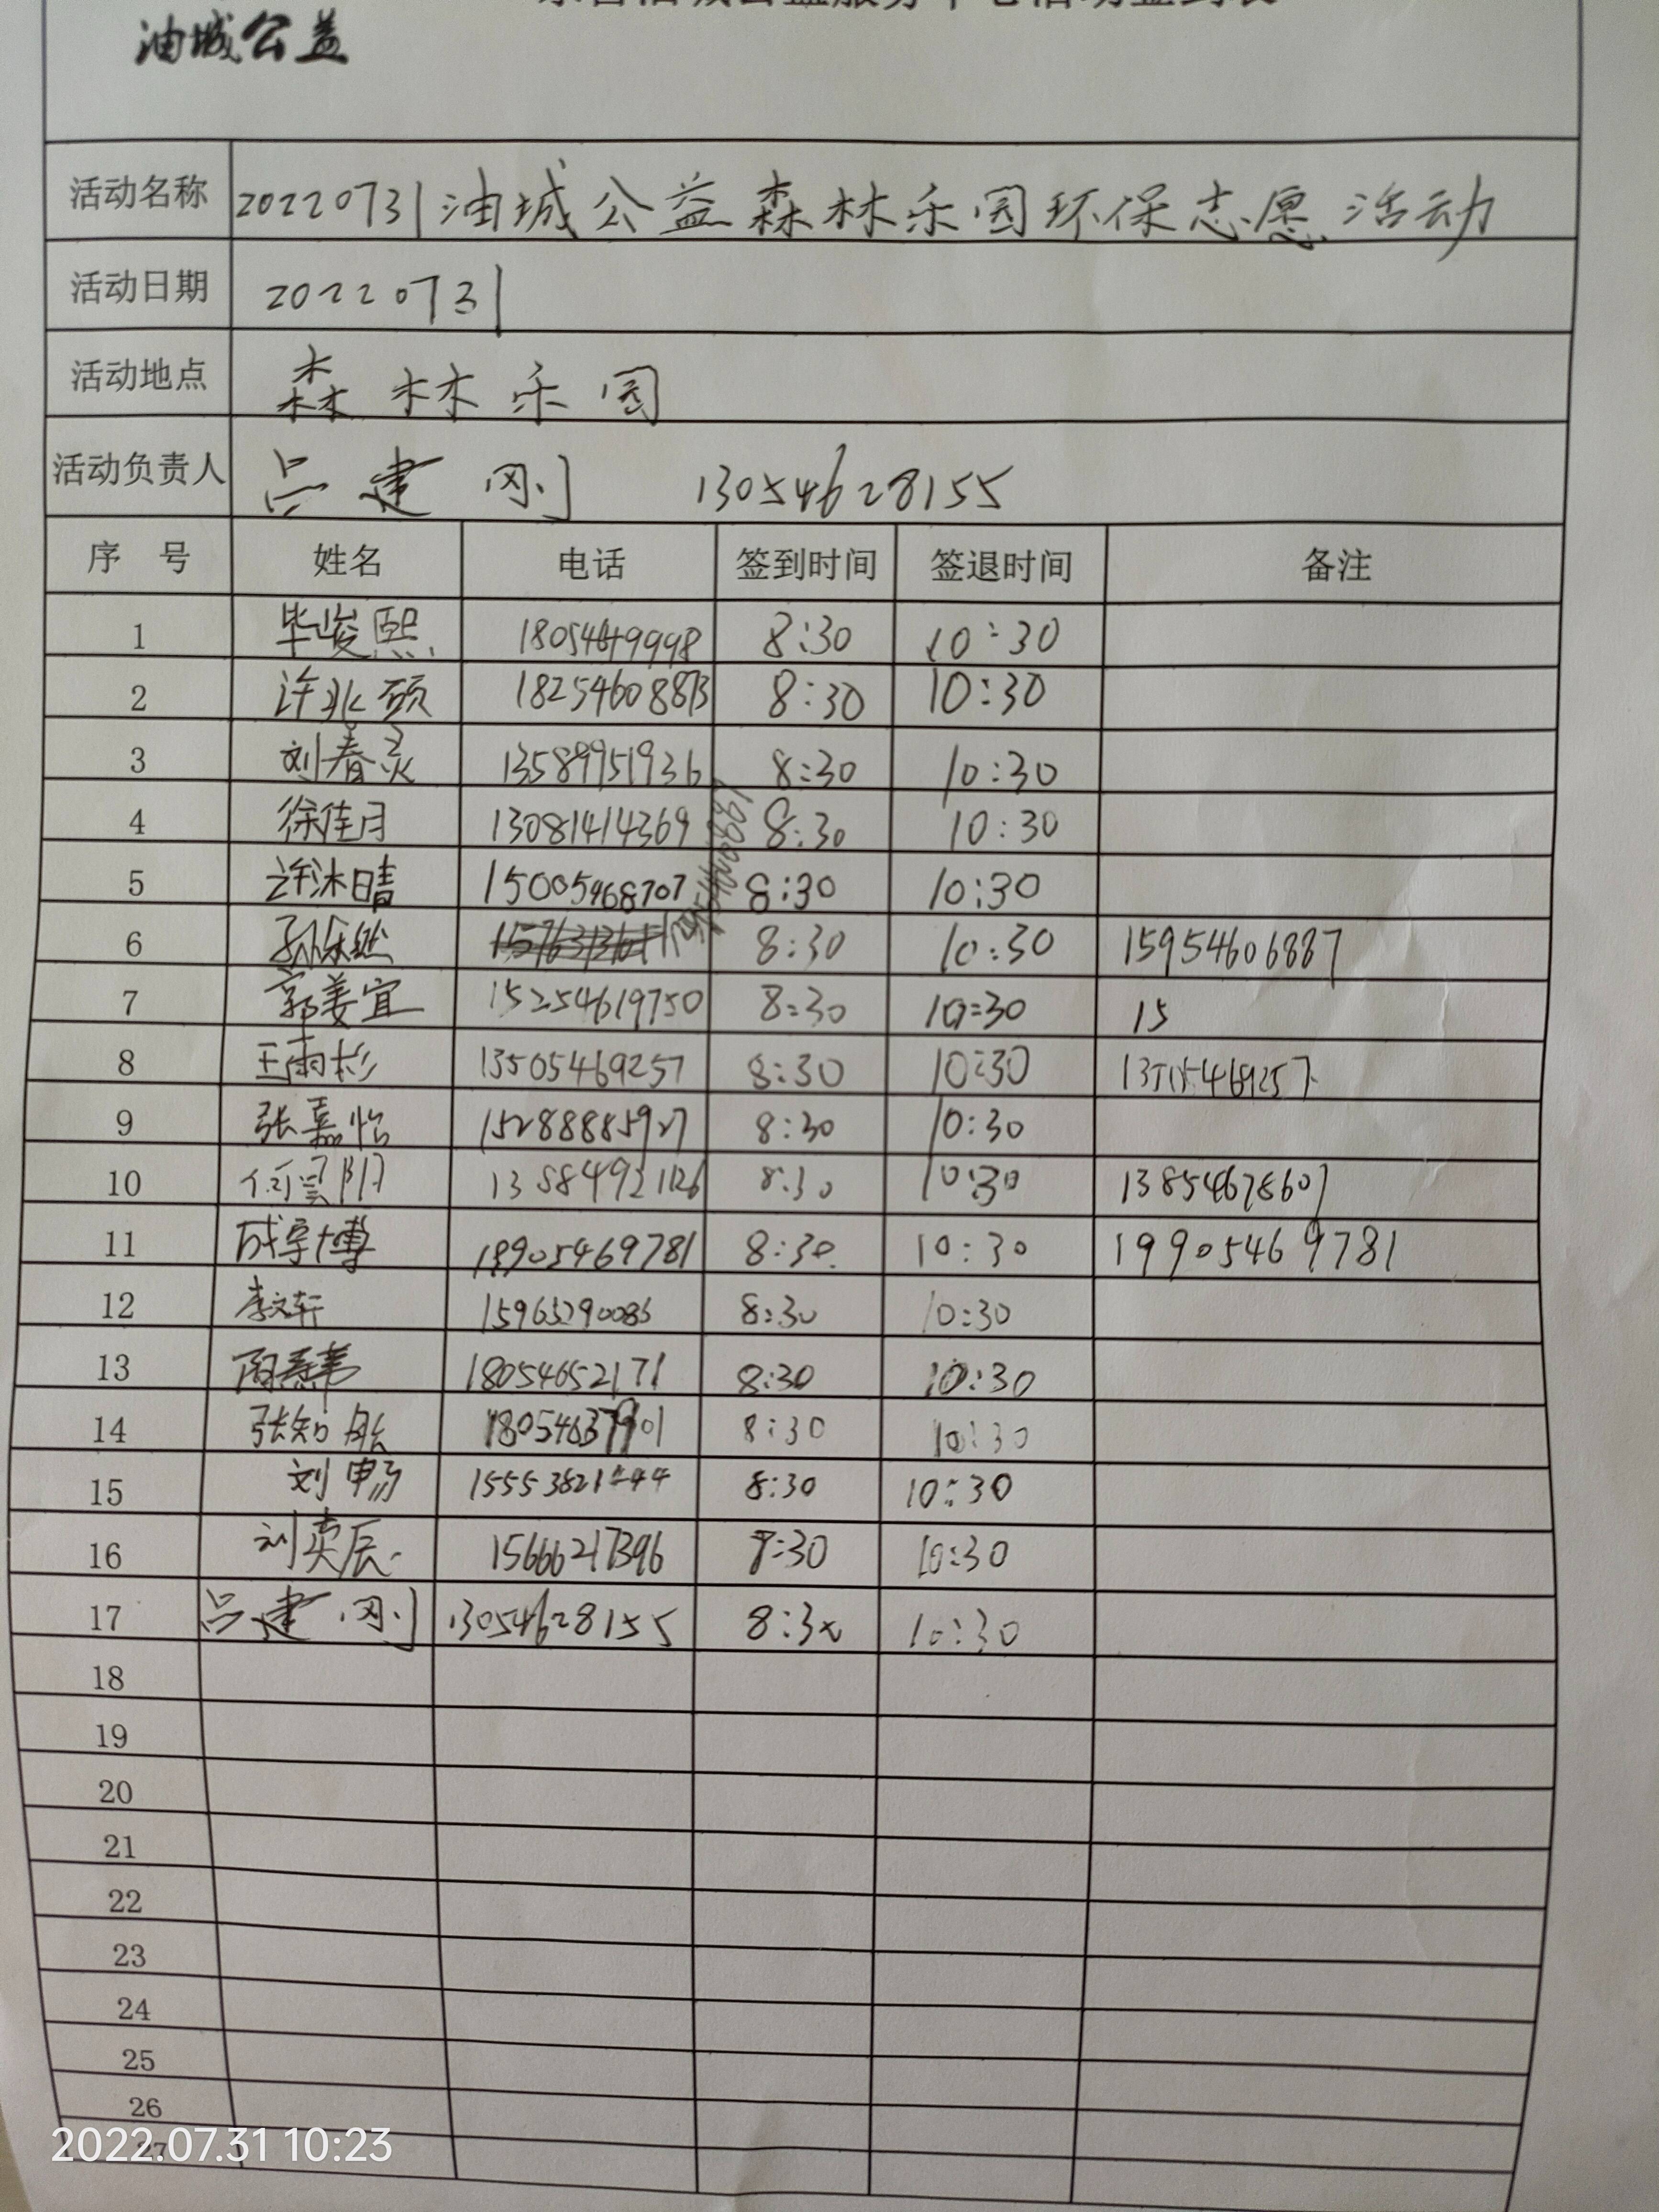 油城公益
活动名称 20220731油城公益森林乐园环保志愿活动
活动日期 20220731
活动地点 森林乐园
活动负责人 吕建刚 13054628155
序 号 姓名 电话 签到时间 签退时间 备注
1 毕峻熙 8:30 10:30
2 许兆硕 18254608873 8:30 10:30
3 刘春灵 13589951936 8:30 10:30
4 徐佳月 13081414369 8:30 10:30
5 许沐晴 15005468707 8:30 10:30
6 8:30 10:30 15954606887
7 郭姜宜 15254619750 8:30 10:30 15
8 王雨杉 13505469257 8:30 10:30 13505469257
9 张嘉怡 15288885927 8:30 10:30
10 8:30 10:30 13854678607
11 成宇博 18905469781 8:30 10:30 19905469781
12 李文轩 8:30 10:30
13 18054652171 8:30 10:30
14 张知 8:30 10:30
15 刘畅 8:30 10:30
16 刘奕辰 15666217396 8:30 10:30
17 吕建刚 13054628155 8:30 10:30
18
19
20
21
22
23
24
25
26
27
2022.07.31 10:23